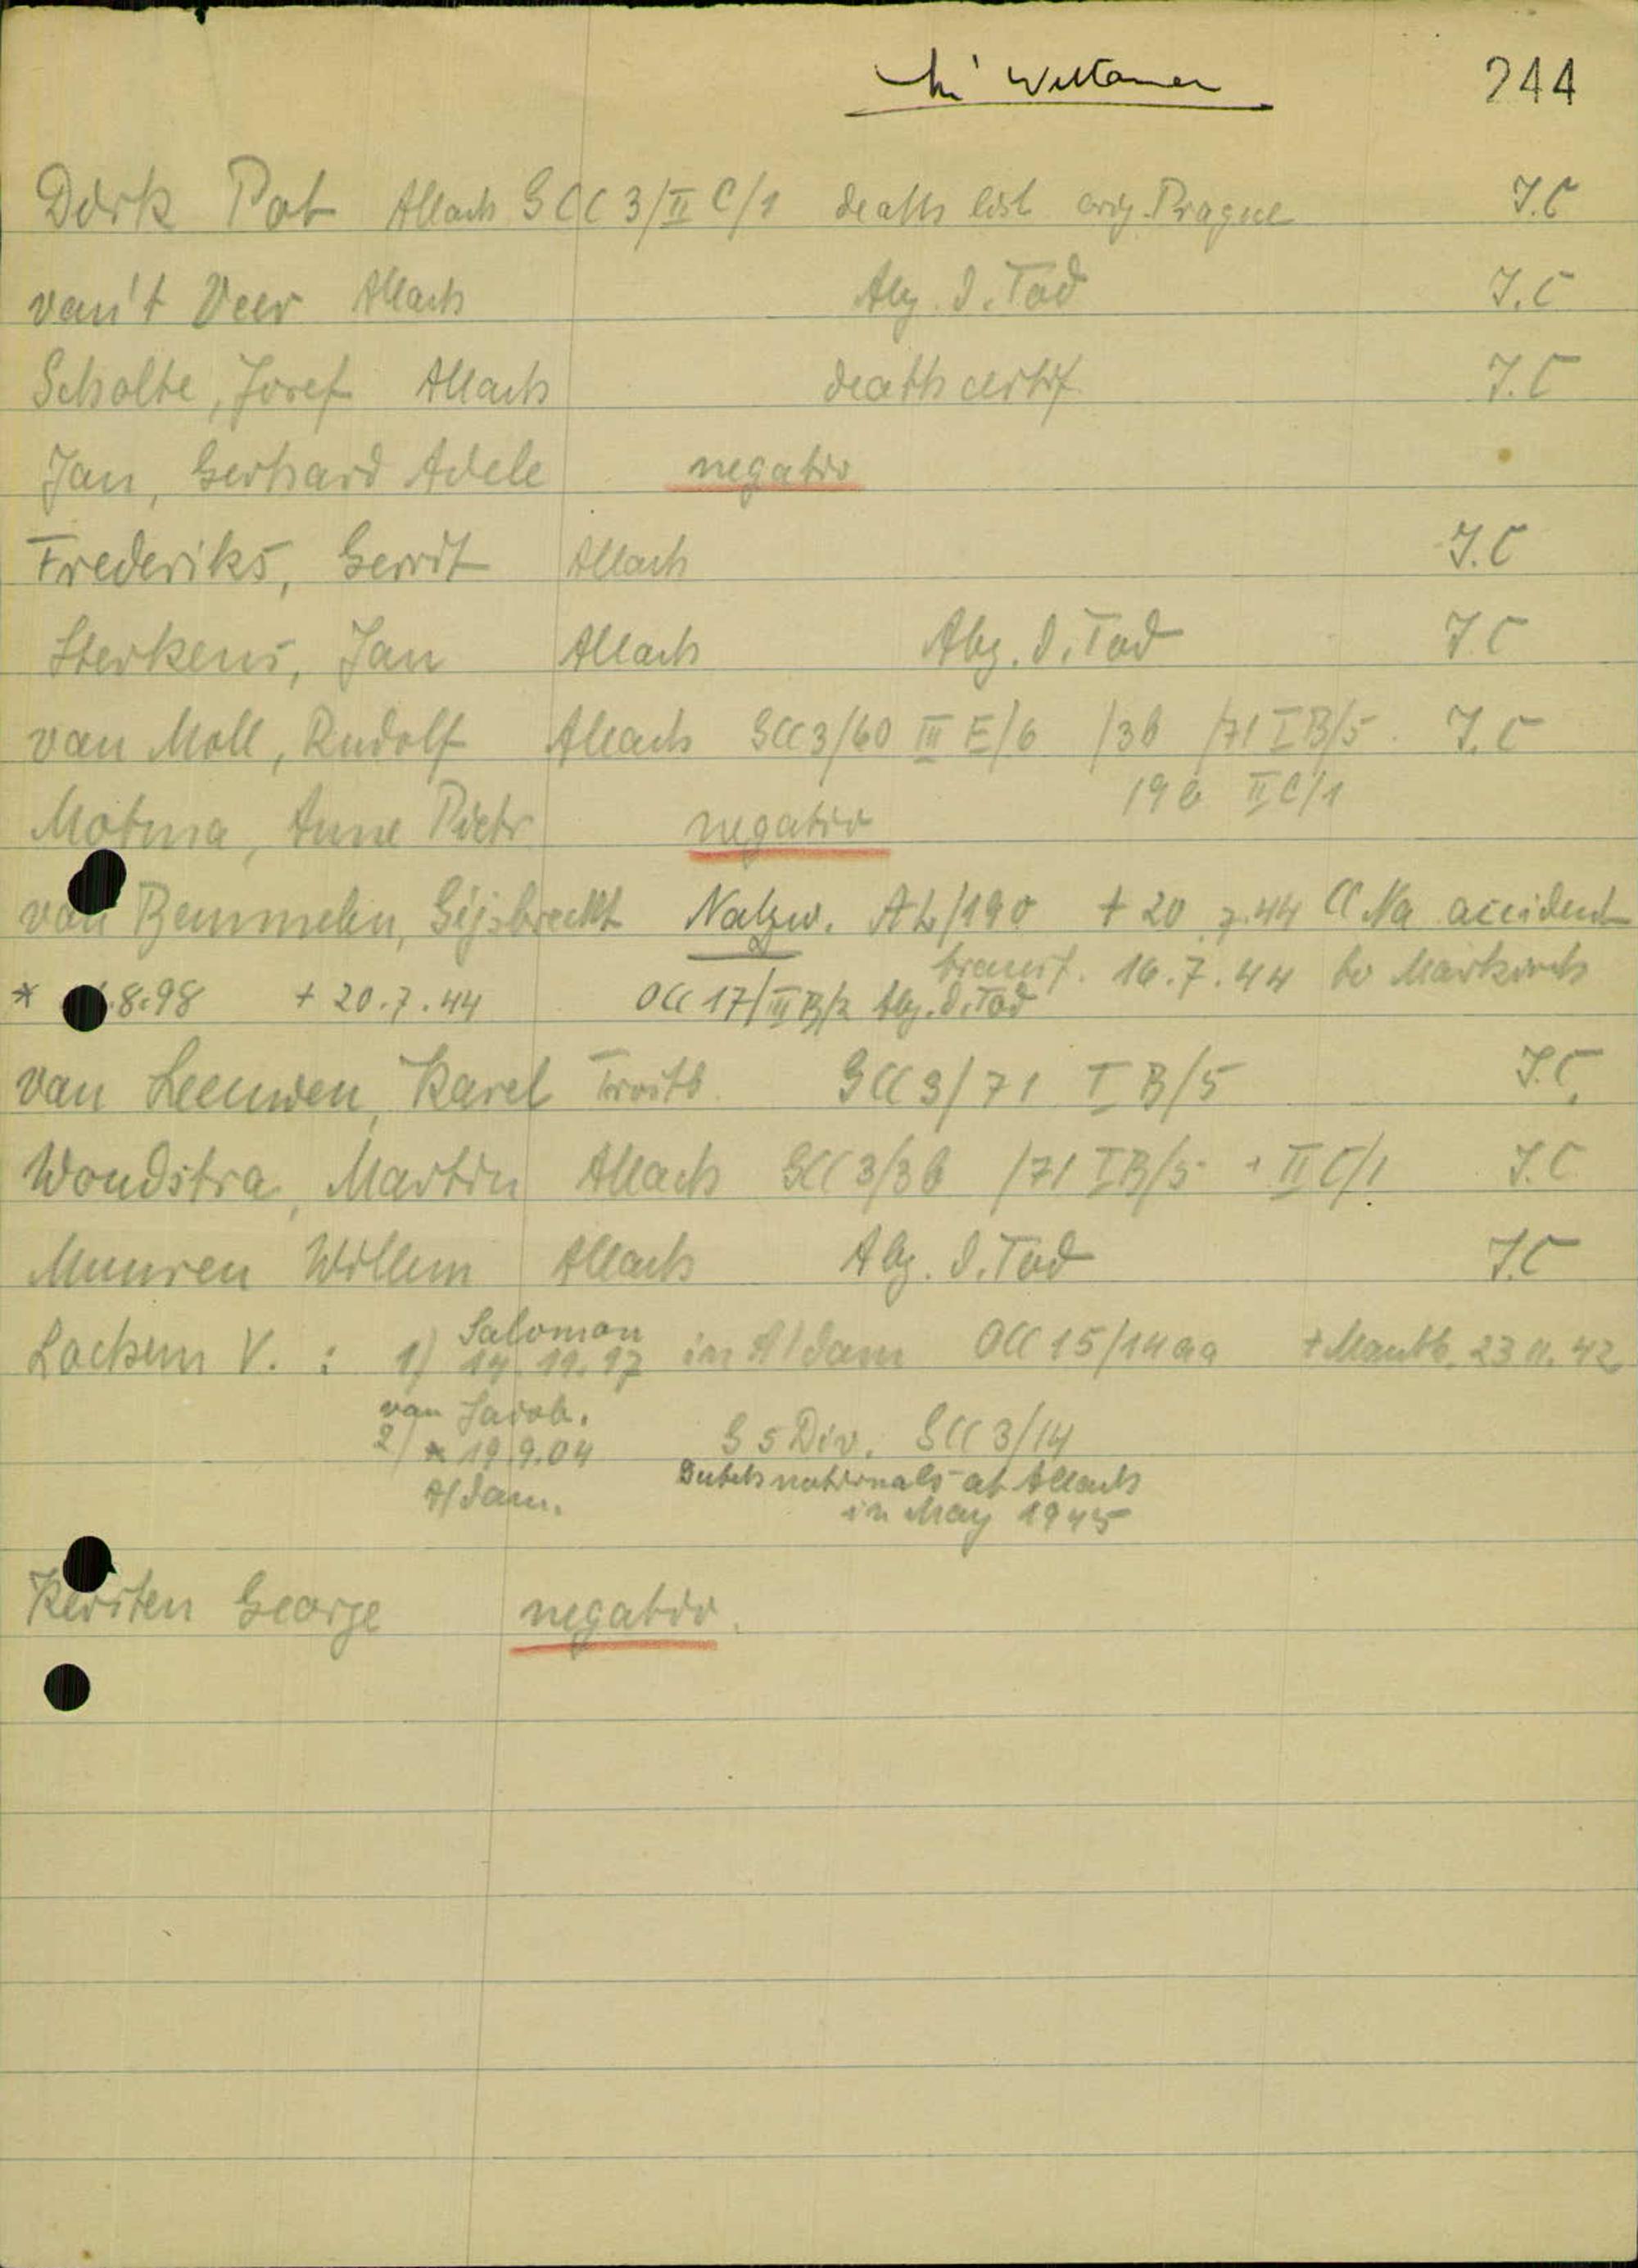 244
Dirk Pot Allach GCC 3/II C/1 death list orig. Prague I.C
van't Veer Allach Abg. d. Tod I.C
Scholte, Josef Allach death certif. I.C
Jan, Gerhard Adele negativ
Frederiks, Gerrit Allach I.C
Sterkens, Jan Allach Abg. d. Tod I.C
van Moll, Rudolf Allach GCC 3/60 III E/6 /38 /71 I B/5. I.C
II C/1
Motma, Anne Pietr negativ
van Bemmelen, Gijsbrecht Natzw. + 20.7.44 CC Na accident
transf. 16.7.44 to Markirch
* .8.98 + 20.7.44 OCC 17/III B/2 Abg. d. Tod
van Leeuwen, Karel Trostb. GCC 3/71 I B/5 I.C.
Woudstra, Martin Allach GCC 3/38 /71 I B/5 + II C/1 I.C
Muuren Willem Allach Abg. d. Tod I.C
Salomon
Lochem V. : 1) 14.11.17 in A/dam OCC 15/14aa + Mauth. 23.11.42
van Jacob.
2) * 19.9.04 G 5 Div. GCC 3/14
A/dam. Dutch nationals at Allach
in May 1945
Kersten George negativ.